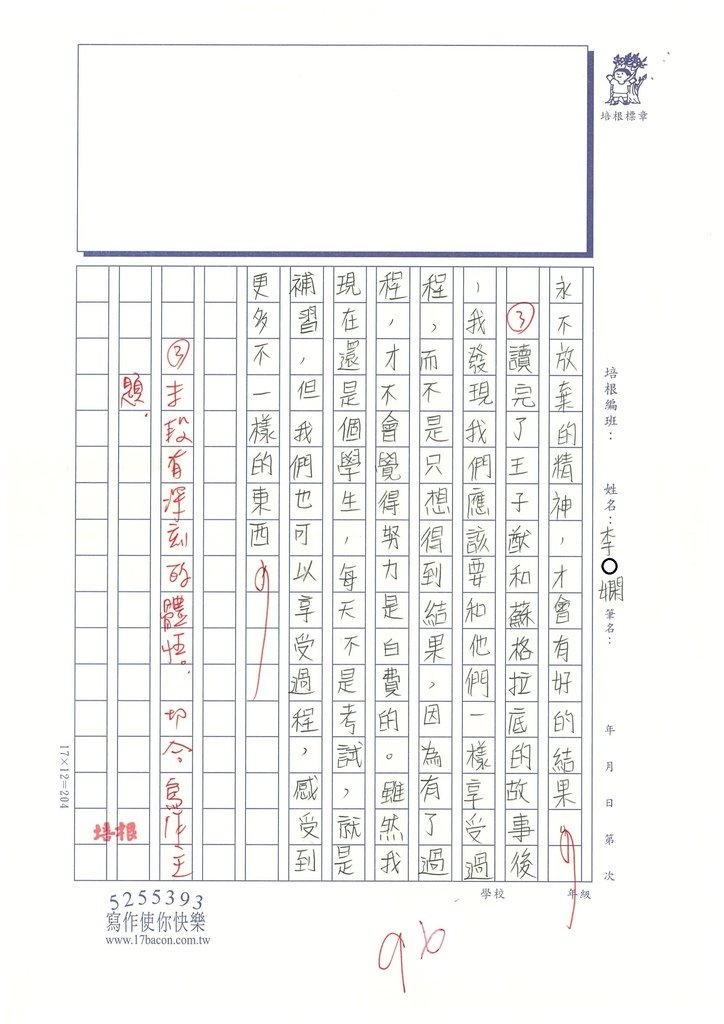 培根標章
培根編班：
姓名：李〇嫻
筆名：
年 月 日 第 次
學校
年級
永不放棄的精神，才會有好的結果
③讀完了王子猷和蘇格拉底的故事後
，我發現我們應該要和他們一樣享受過
程，而不是只想得到結果，因為有了過
程，才不會覺得努力是白費的。雖然我
現在還是個學生，每天不是考試，就是
補習，但我們也可以享受過程，感受到
更多不一樣的東西
③末段有深刻的體悟。切合寫作主
題。
培根
17×12=204
5255393
寫作使你快樂
www.17bacon.com.tw